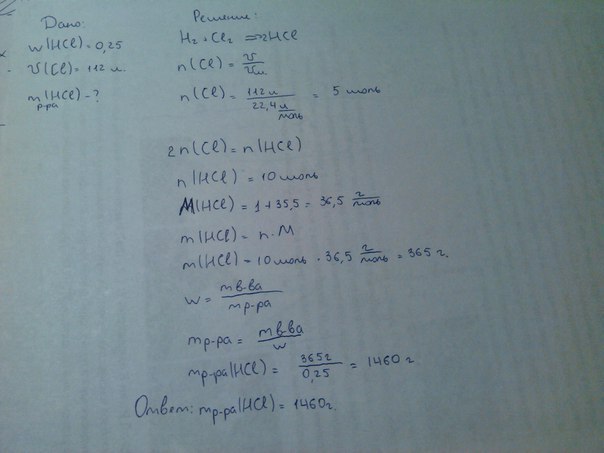 Дано:
w(HCl)=0,25
V(Cl)=112 л.
m(HCl)-?
р-ра
Решение:
H₂+Cl₂ => 2HCl
n(Cl) = V/Vм.
n(Cl) = 112 л/22,4 л/моль = 5 моль
2n(Cl) = n(HCl)
n(HCl) = 10 моль
M(HCl) = 1+35,5 = 36,5 г/моль
m(HCl) = n·M
m(HCl) = 10 моль · 36,5 г/моль = 365 г.
w = mв-ва/mр-ра
mр-ра = mв-ва/w
mр-ра(HCl) = 365г/0,25 = 1460 г
Ответ: mр-ра(HCl) = 1460г.